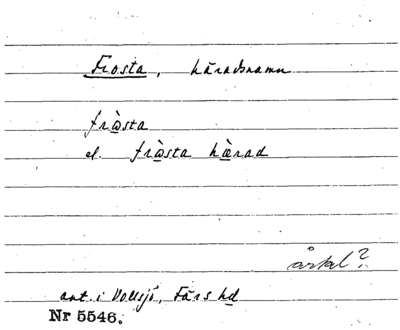 Frosta, häradsnamn
frωsta
el. frωsta hærad
årtal?
ant. i Vollsjö, Färs hd
Nr 5546.